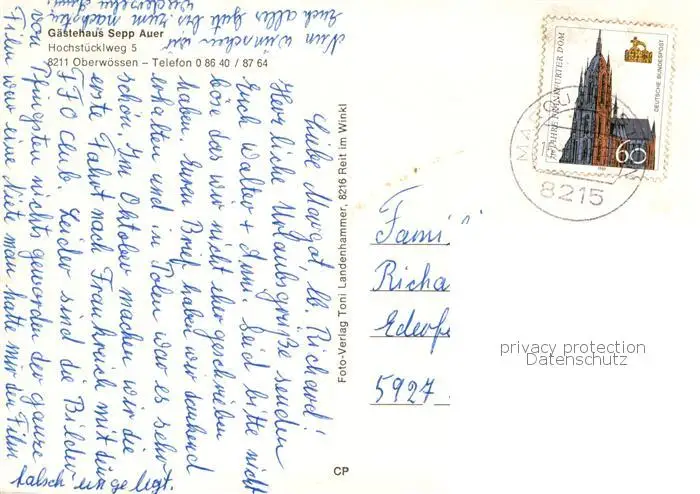 Gästehaus Sepp Auer
Hochstücklweg 5
8211 Oberwössen – Telefon 0 86 40 / 87 64
Liebe Margot, lb. Richard!
Herzliche Urlaubsgrüße senden
Euch Walter + Anni. Seid bitte nicht
böse das wir nicht eher geschrieben
haben. Euren Brief haben wir dankend
erhalten und in Polen war es sehr
schön. Im Oktober machen wir die
erste Fahrt nach Frankreich mit dem
FFO Club. Leider sind die Bilder
von Pfingsten nichts geworden der ganze
Film war eine Niete man hatte mir den Film
falsch eingelegt.
Nun wünschen wir
Euch alles gute bis zum nächsten
wiedersehn
Foto-Verlag Toni Landenhammer, 8216 Reit im Winkl
CP
JAHRE FRANKFURTER DOM
DEUTSCHE BUNDESPOST
60
8215
Fami
Richa
Ederfe
5927
privacy protection
Datenschutz